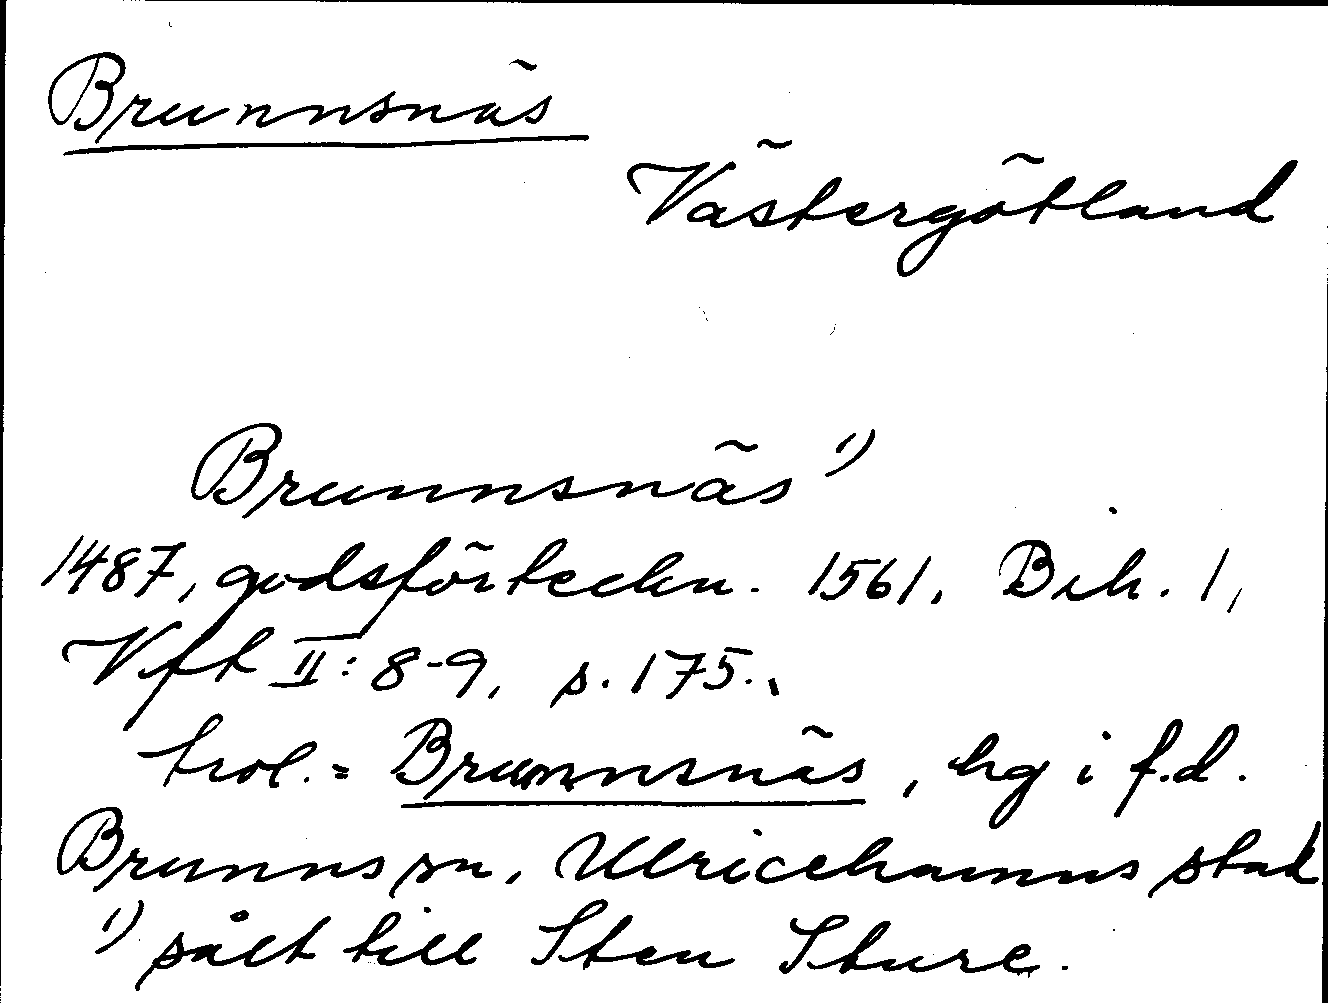 Brunnsnäs
Västergötland
Brunnsnäs 1)
1487, godsförteckn. 1561. Bih. 1,
Vft II: 8-9, s. 175.,
trol. = Brunnsnäs, hg i f.d.
Brunns sn, Ulricehamns stad
1) sålt till Sten Sture.